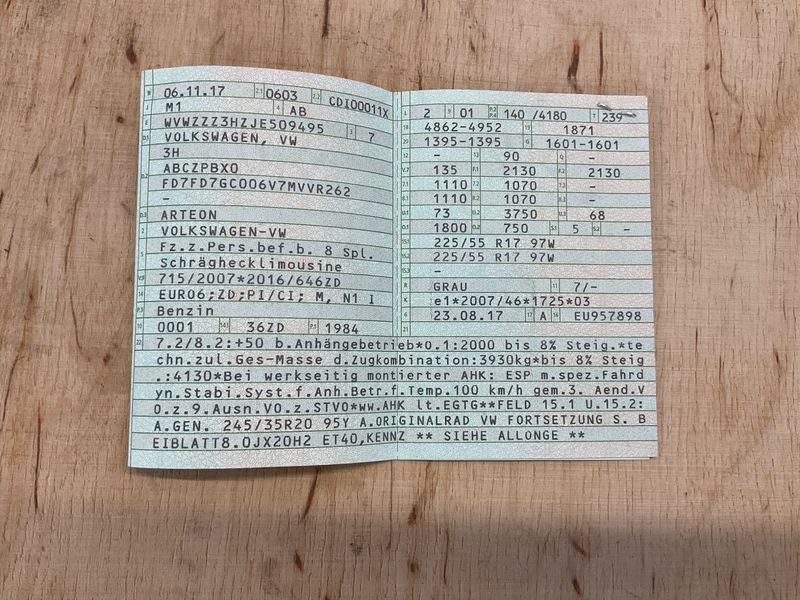 B 06.11.17 2.1 0603 2.2 CDI00011X
J M1 4 AB
E WVWZZZ3HZJE509495 3 7
D.1 VOLKSWAGEN, VW
3H
D.2 ABCZPBX0
FD7FD7GC006V7MVVR262
-
D.3 ARTEON
2 VOLKSWAGEN-VW
5 Fz.z.Pers.bef.b. 8 Spl.
Schräghecklimousine
V.9 715/2007*2016/646ZD
14 EURO6;ZD;PI/CI; M, N1 I
P.3 Benzin
10 0001 14.1 36ZD P.1 1984
L 2 9 01 P.2 P.4 140 /4180 T 239
18 4862-4952 19 1871
20 1395-1395 G 1601-1601
12 - 13 90 Q -
V.7 135 F.1 2130 F.2 2130
7.1 1110 7.2 1070 7.3 -
8.1 1110 8.2 1070 8.3 -
U.1 73 U.2 3750 U.3 68
O.1 1800 O.2 750 S.1 5 S.2 -
15.1 225/55 R17 97W
15.2 225/55 R17 97W
15.3 -
R GRAU 11 7/-
K e1*2007/46*1725*03
6 23.08.17 17 A 16 EU957898
21
22 7.2/8.2:+50 b.Anhängebetrieb*0.1:2000 bis 8% Steig.*te
chn.zul.Ges-Masse d.Zugkombination:3930kg*bis 8% Steig
.:4130*Bei werkseitig montierter AHK: ESP m.spez.Fahrd
yn.Stabi.Syst.f.Anh.Betr.f.Temp.100 km/h gem.3. Aend.V
O.z.9.Ausn.VO.z.STVO*ww.AHK lt.EGTG**FELD 15.1 U.15.2:
A.GEN. 245/35R20 95Y A.ORIGINALRAD VW FORTSETZUNG S. B
EIBLATT8.0JX20H2 ET40,KENNZ ** SIEHE ALLONGE **